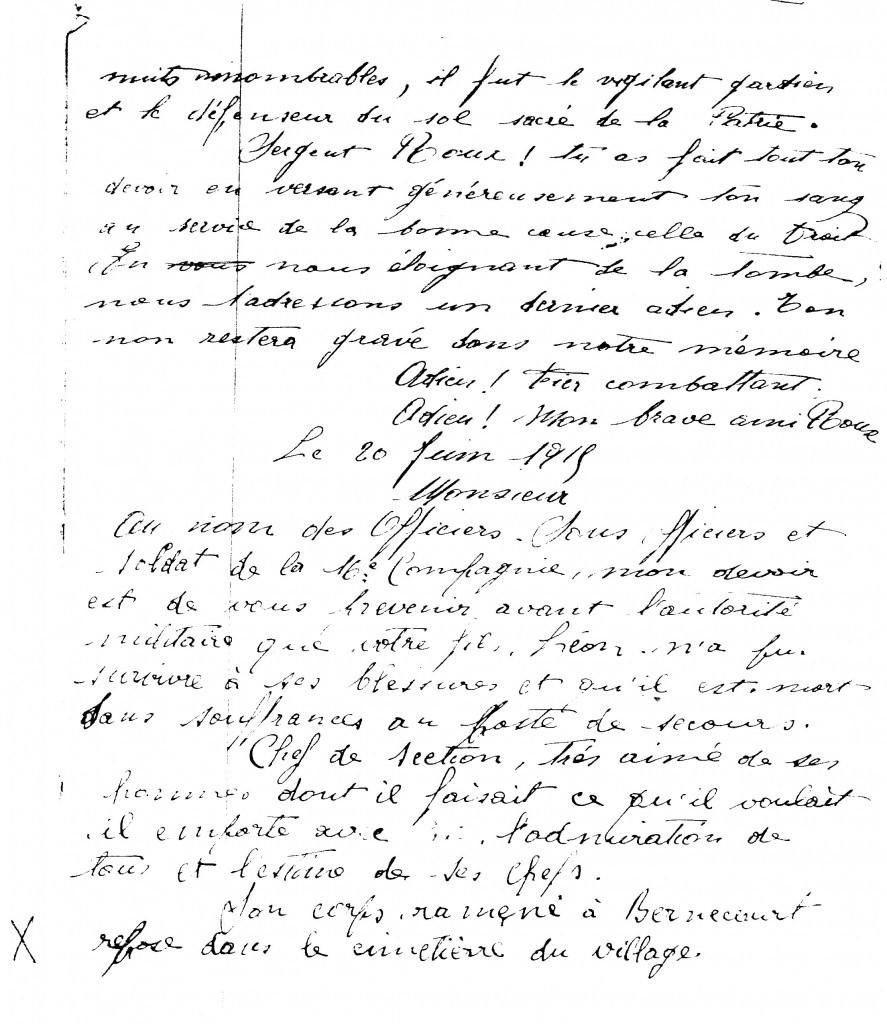 nuits innombrables, il fut le vigilant gardien
et le défenseur du sol sacré de la Patrie.
Sergent Roux! tu as fait tout ton
devoir en versant généreusement ton sang
au service de la bonne cause, celle du Droit
En vous nous éloignant de la tombe,
nous t'adressons un dernier adieu. Ton
nom restera gravé dans notre mémoire
Adieu! Fier combattant.
Adieu! Mon brave ami Roux
Le 20 Juin 1915
Monsieur
Au nom des Officiers. Sous officiers et
soldat de la 16e Compagnie, mon devoir
est de vous prevenir avant l'autorité
militaire que votre fils, Léon n'a pu
survivre à ses blessures et qu'il est mort
sans souffrances au poste de secours.
Chef de section, très aimé de ses
hommes dont il faisait ce qu'il voulait
il emporte avec l'admiration de
tous et l'estime de ses chefs.
Son corps ramené à Bernecourt
repose dans le cimetière du village.